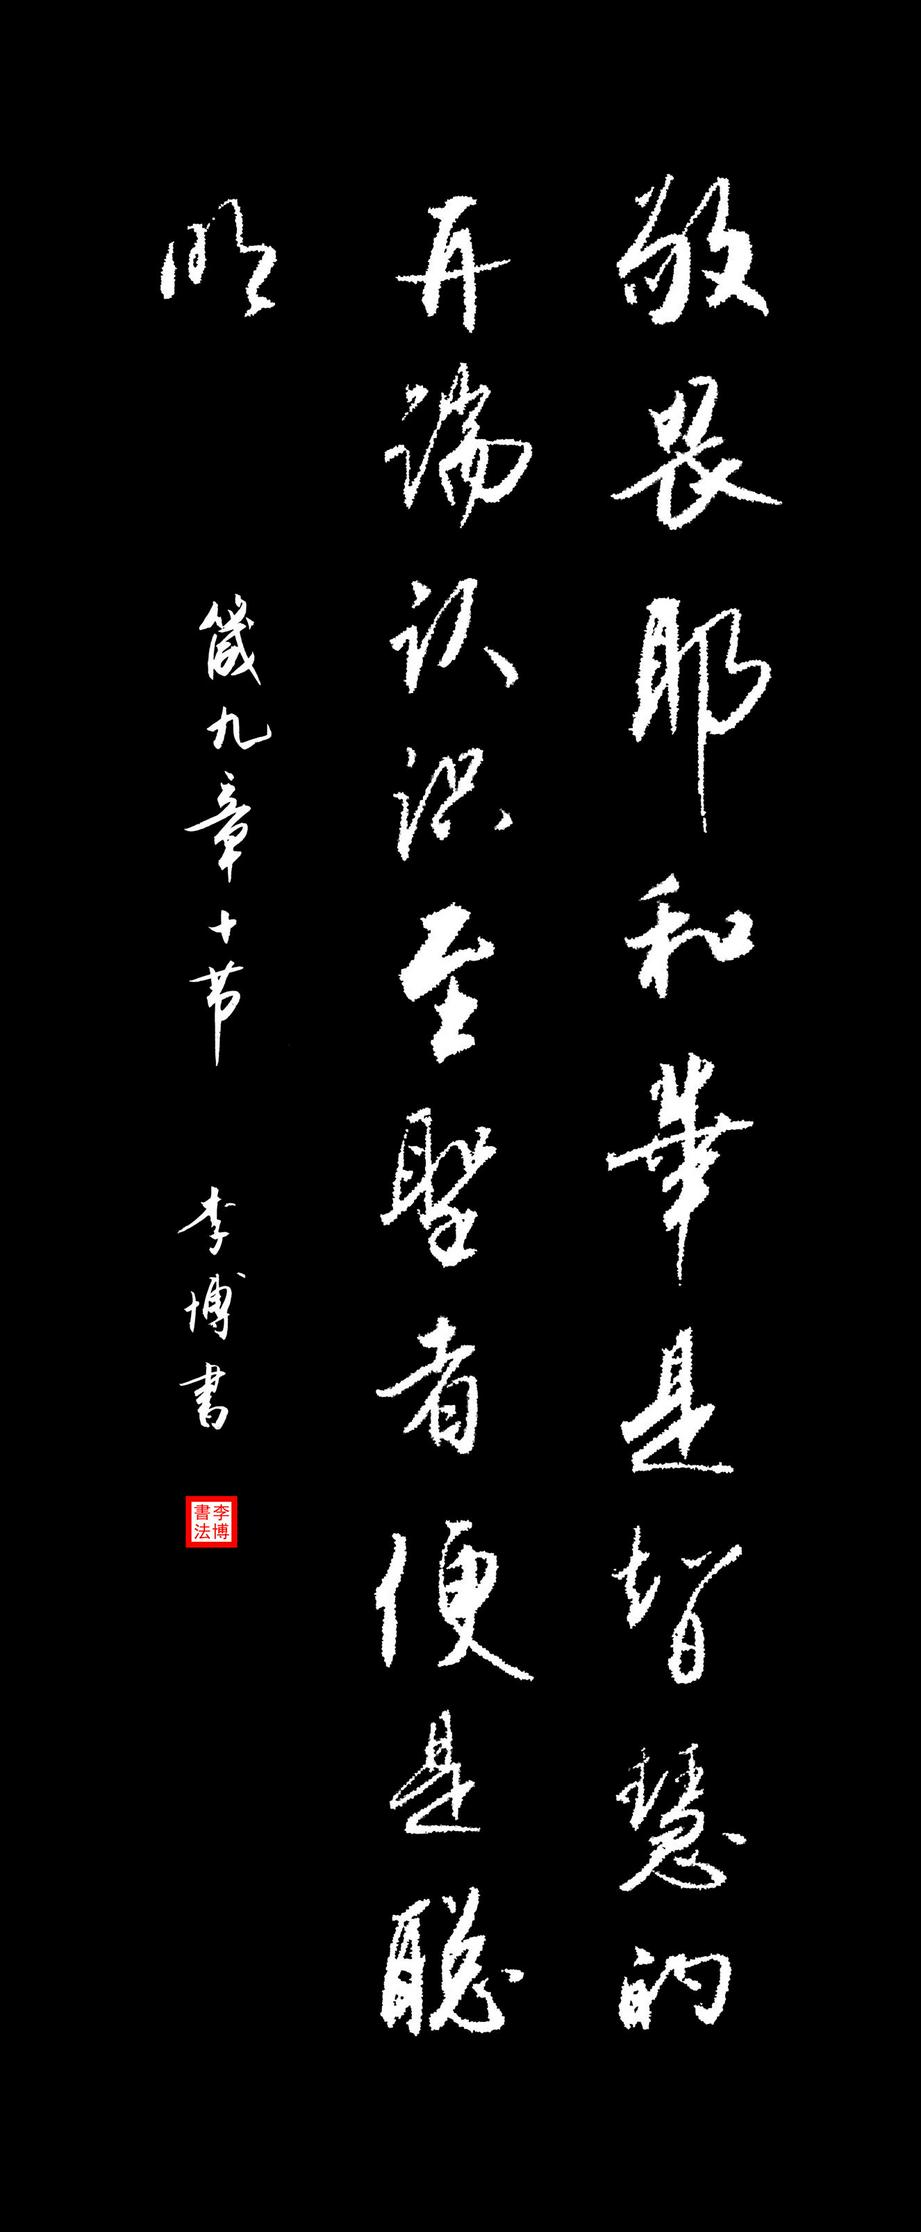 敬畏耶和華是智慧的
开端认识至聖者便是聪
明
箴九章十节 李博書
李博
書法